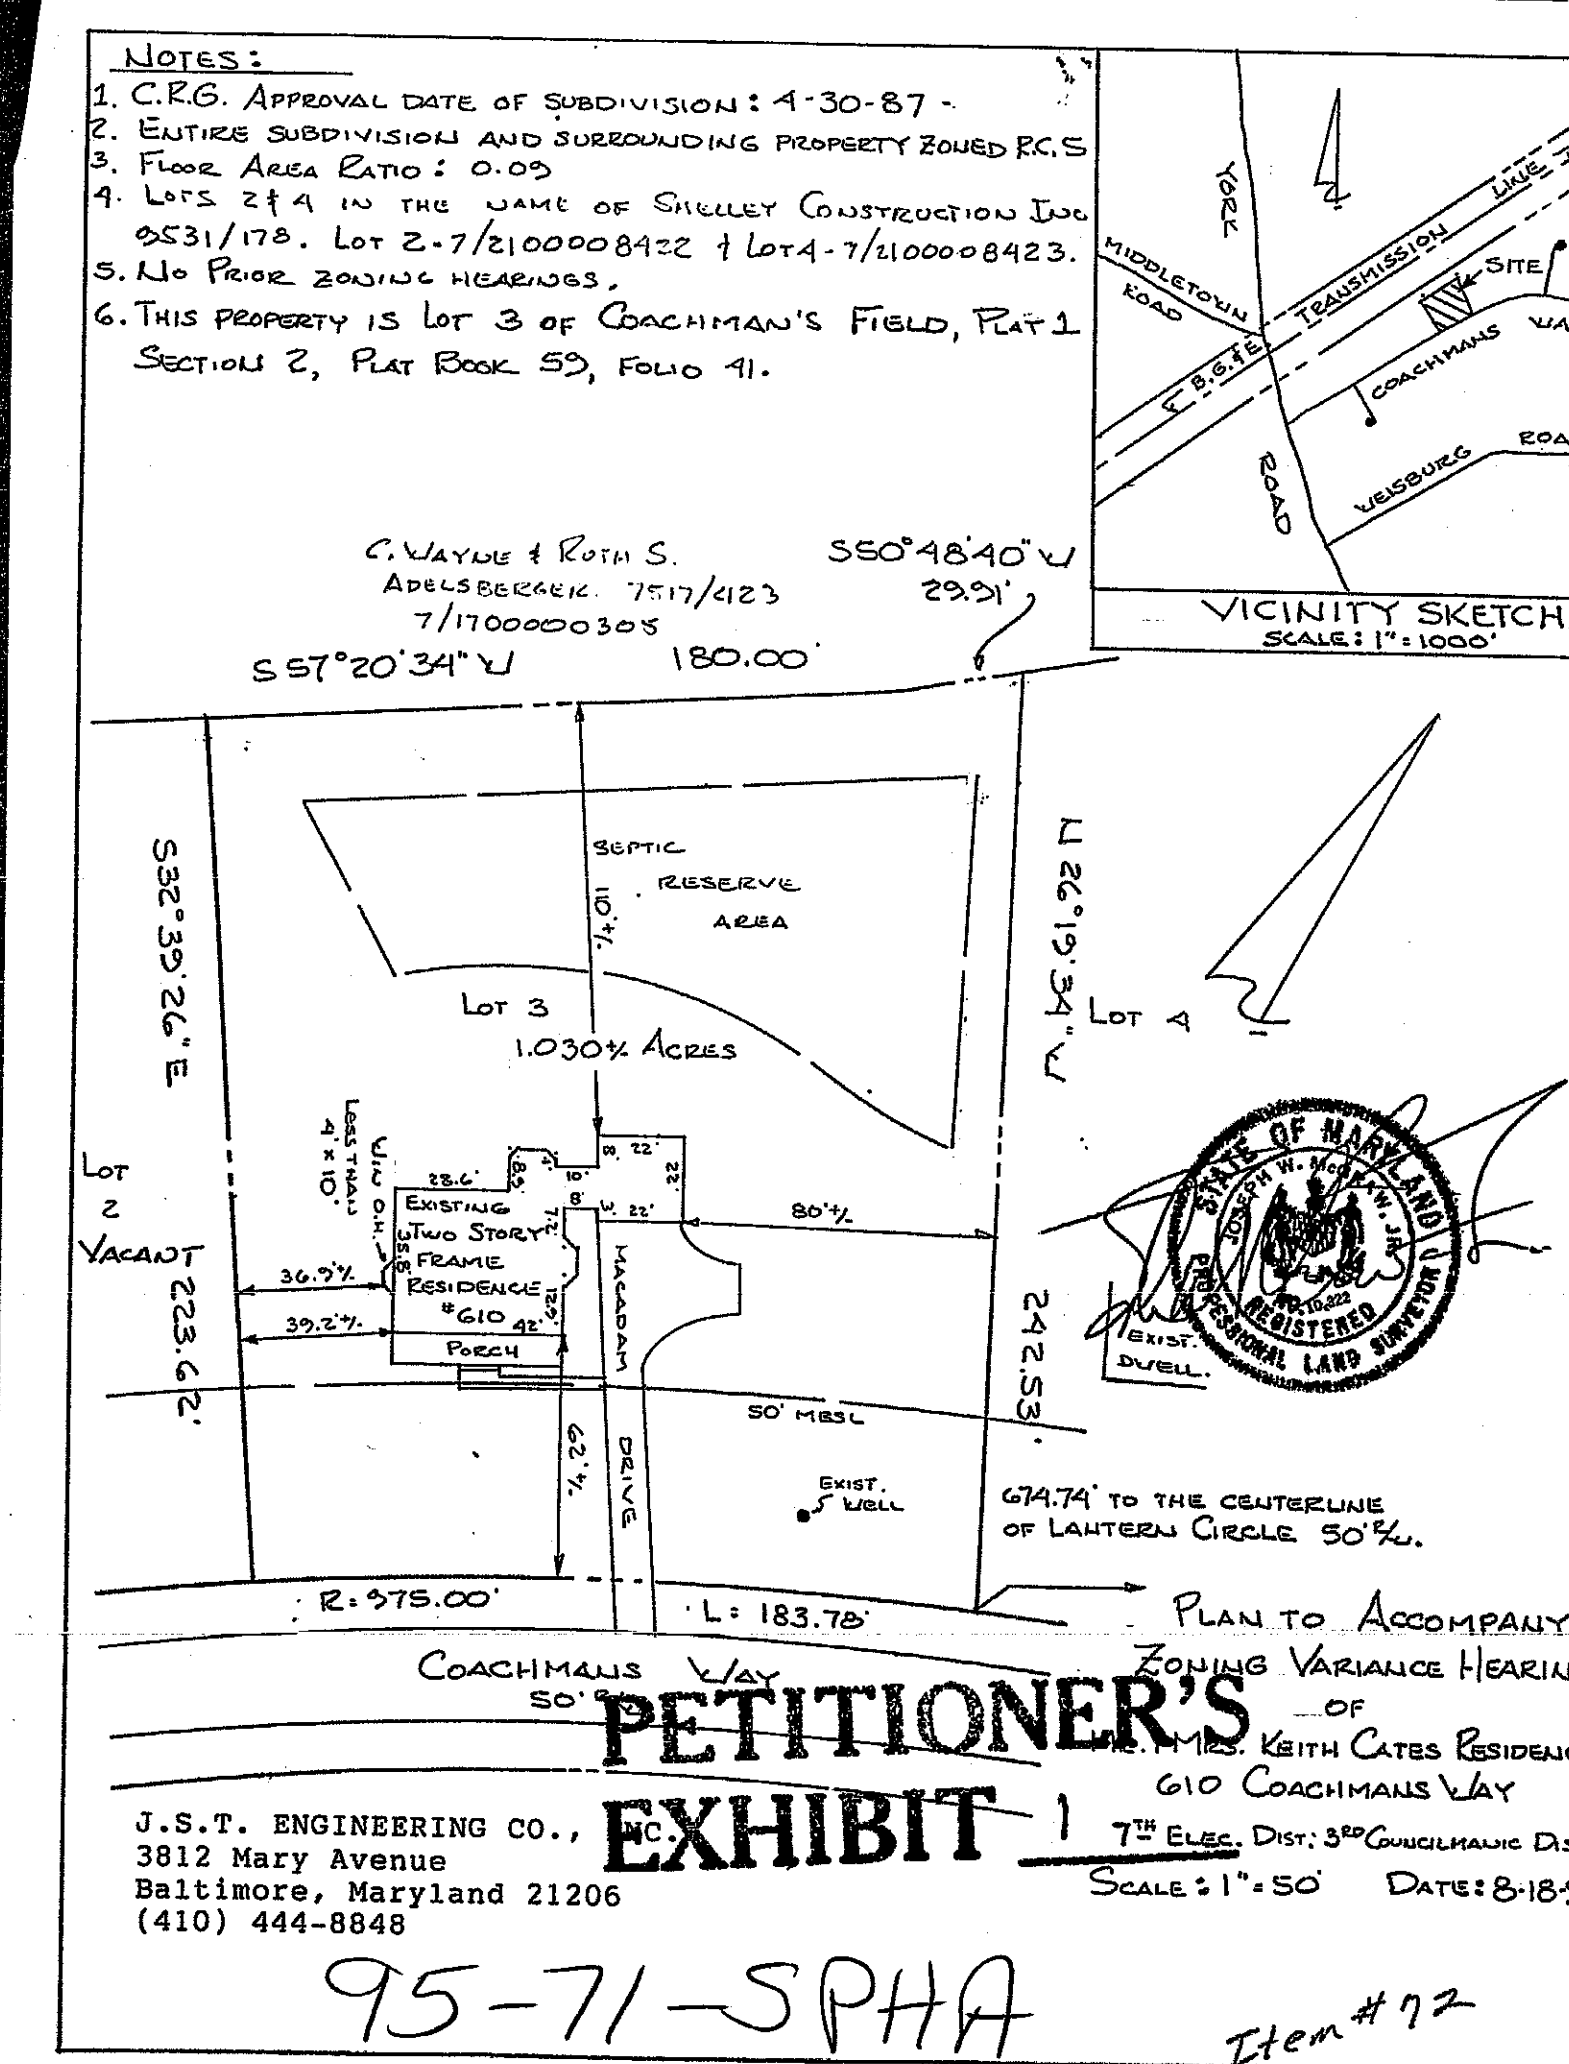 NOTES:
1. C.R.G. APPROVAL DATE OF SUBDIVISION: 4-30-87
2. ENTIRE SUBDIVISION AND SURROUNDING PROPERTY ZONED R.C.5
3. FLOOR AREA RATIO: 0.09
4. LOTS 2 & 4 IN THE NAME OF SHELLEY CONSTRUCTION INC
9531/178. LOT 2-7/2100008422 & LOT 4-7/2100008423.
5. NO PRIOR ZONING HEARINGS.
6. THIS PROPERTY IS LOT 3 OF COACHMAN'S FIELD, PLAT 1
SECTION 2, PLAT BOOK 59, FOLIO 41.
YORK
ROAD
MIDDLETOWN
ROAD
B.G.&E. TRANSMISSION LINE
SITE
COACHMANS WA
WEISBURG ROA
VICINITY SKETCH
SCALE: 1"=1000'
C. WAYNE & RUTH S.
ADELSBERGER. 7517/423
7/1700000305
S50°48'40"W
29.91'
S57°20'34"W 180.00'
S32°39'26"E
223.62'
N26°19'34"W
242.53'
SEPTIC
RESERVE
AREA
110'+/-
LOT 3
1.030+/- ACRES
LOT 4
LOT
2
VACANT
LESS THAN
4' x 10'
WIN O.H.
28.6'
8.5'
4'
10'
8'
22'
22'
22'
8'
3'
7.2'
35.8'
12.9'
42'
EXISTING
TWO STORY
FRAME
RESIDENCE
#610
PORCH
36.9'+/-
39.2'+/-
80'+/-
62'+/-
MACADAM DRIVE
50' MBSL
EXIST.
WELL
EXIST.
DWELL.
STATE OF MARYLAND
JOSEPH W. McGRAW, JR.
NO. 10,822
REGISTERED
PROFESSIONAL LAND SURVEYOR
674.74' TO THE CENTERLINE
OF LANTERN CIRCLE 50' R/W.
R=975.00'
L=183.78'
COACHMANS WAY
50'
PETITIONER'S
EXHIBIT 1
PLAN TO ACCOMPANY
ZONING VARIANCE HEARIN
OF
MR. & MRS. KEITH CATES RESIDENC
610 COACHMANS WAY
7TH ELEC. DIST; 3RD COUNCILMANIC DIS
SCALE: 1"=50' DATE: 8-18-9
J.S.T. ENGINEERING CO., INC.
3812 Mary Avenue
Baltimore, Maryland 21206
(410) 444-8848
95-71-SPHA
Item #72